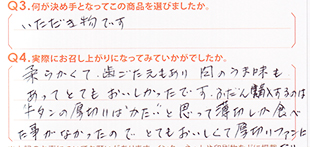 Q3.何が決め手となってこの商品を選びましたか。
いただき物です
Q4.実際にお召し上がりになってみていかがでしたか。
柔らかくて、歯ごたえもあり 肉のうま味も
あってとても おいしかったです。ふだん購入するのは
牛タンの厚切りは"かたい"と思って薄切しか食べ
た事がなかったので とてもおいしくて厚切りファンに